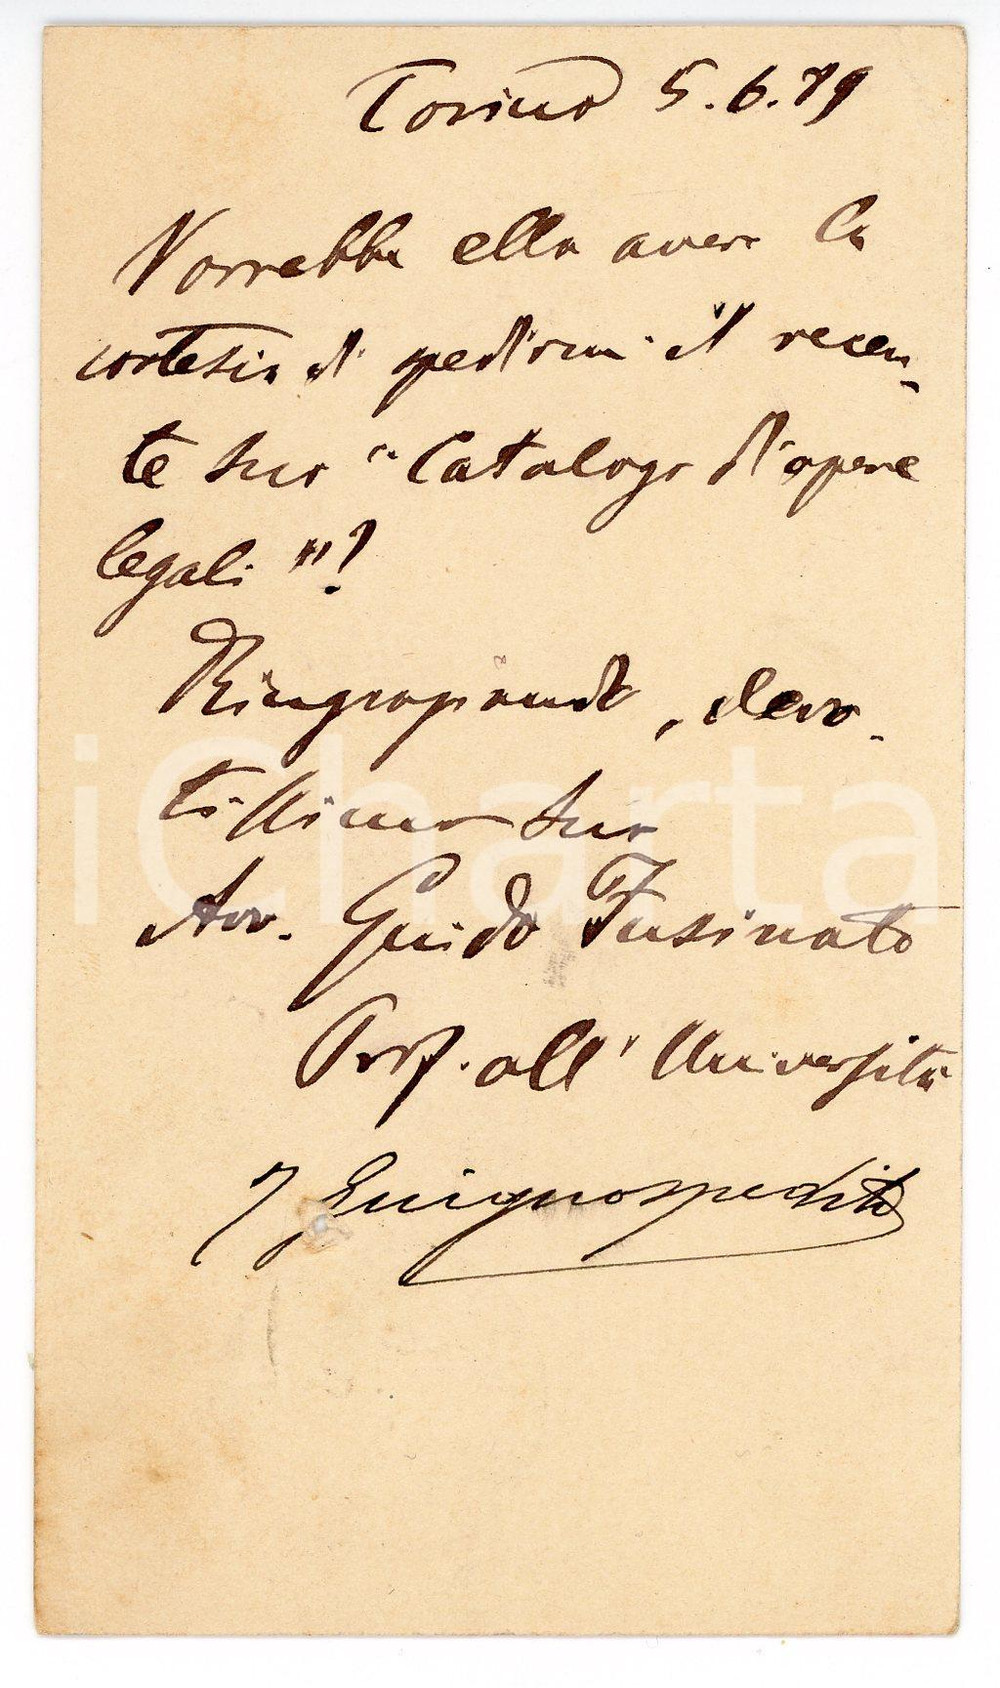 Torino 5.6.89
Vorrebbe ella avere la
cortesia di spedirmi il recen-
te suo "Catalogo d'opere
legali"?
Ringraziandola, devo-
tissimo suo
Avv. Guido Fusinato
Prof. all'Università
7 Giugno spedito
iCharta